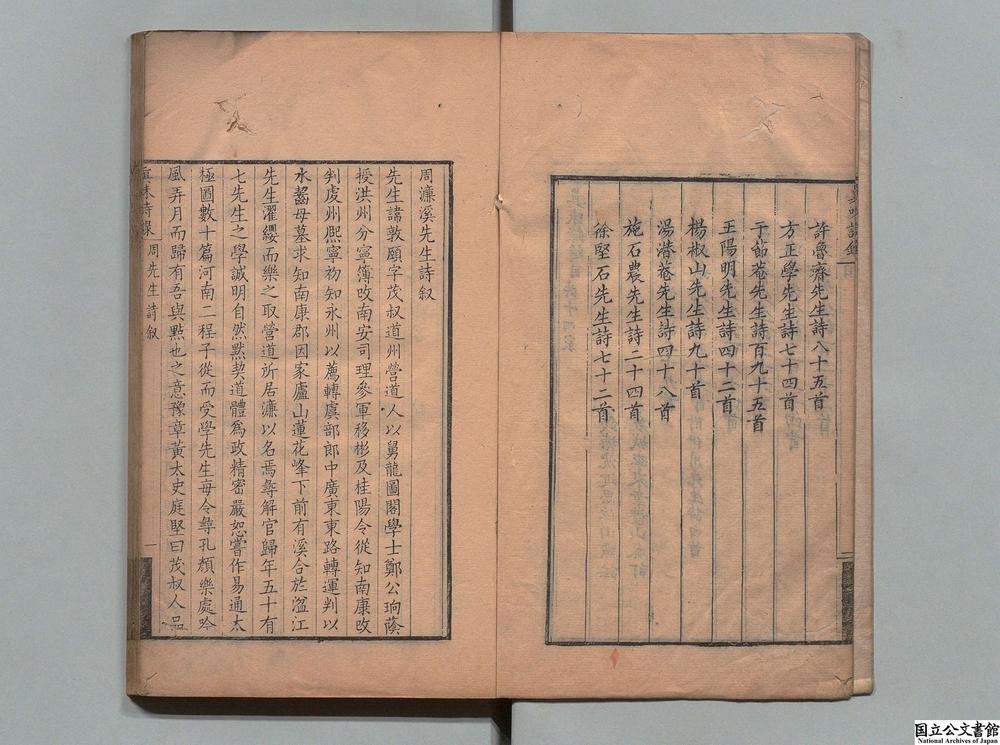 許魯齋先生詩八十五首
方正學先生詩七十四首
于節菴先生詩百九十五首
王陽明先生詩四十二首
楊椒山先生詩九十首
湯潜菴先生詩四十八首
施石農先生詩二十四首
徐堅石先生詩七十二首
周濂溪先生詩叙
先生諱敦頤字茂叔道州營道人以舅龍圖閣學士鄭公珦蔭
授洪州分寧簿改南安司理參軍移彬及桂陽令從知南康改
判虔州熈寧初知永州以薦轉虞部郎中廣東東路轉運判以
水齧母墓求知南康郡因家廬山蓮花峰下前有溪合於湓江
先生濯纓而樂之取營道所居濂以名焉尋解官歸年五十有
七先生之學誠明自然默契道體爲政精密嚴恕嘗作易通太
極圖數十篇河南二程子從而受學先生每令尋孔顏樂處吟
風弄月而歸有吾與點也之意豫章黃太史庭堅曰茂叔人品
周先生詩叙
一
国立公文書館
National Archives of Japan